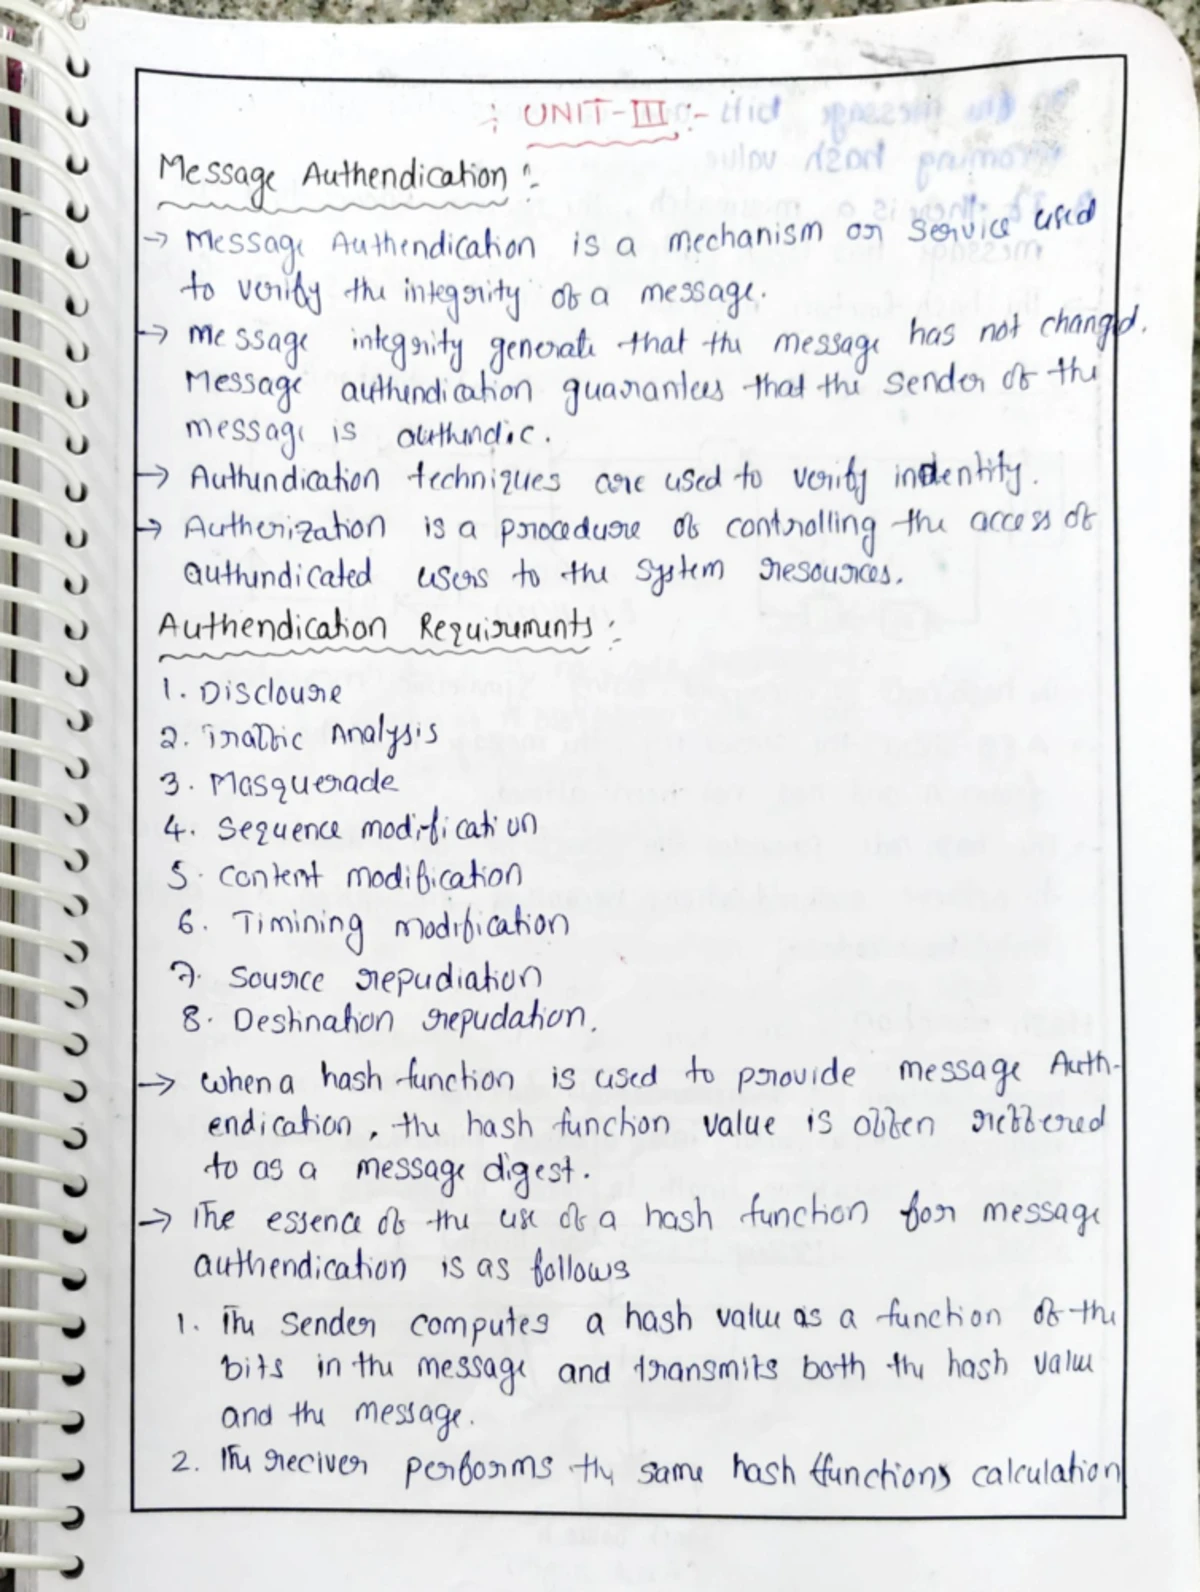 :- UNIT-III :-
Message Authendication :-
→ Message Authendication is a mechanism or service used
to verify the integrity of a message.
→ Message integrity generate that the message has not changed.
Message authendication guarantees that the sender of the
message is authendic.
→ Authendication techniques are used to verify indentity.
→ Autherization is a procedure of controlling the access of
authendicated users to the system resources.
Authendication Requirements :-
1. Discloure
2. Traffic Analysis
3. Masquerade
4. Sequence modification
5. Content modification
6. Timining modification
7. Source repudiation
8. Destination repudation.
→ when a hash function is used to provide message Auth-
endication, the hash function value is often reffered
to as a message digest.
→ The essence of the use of a hash function for message
authendication is as follows
1. The sender computes a hash value as a function of the
bits in the message and transmits both the hash value
and the message.
2. The reciver performs the same hash functions calculation